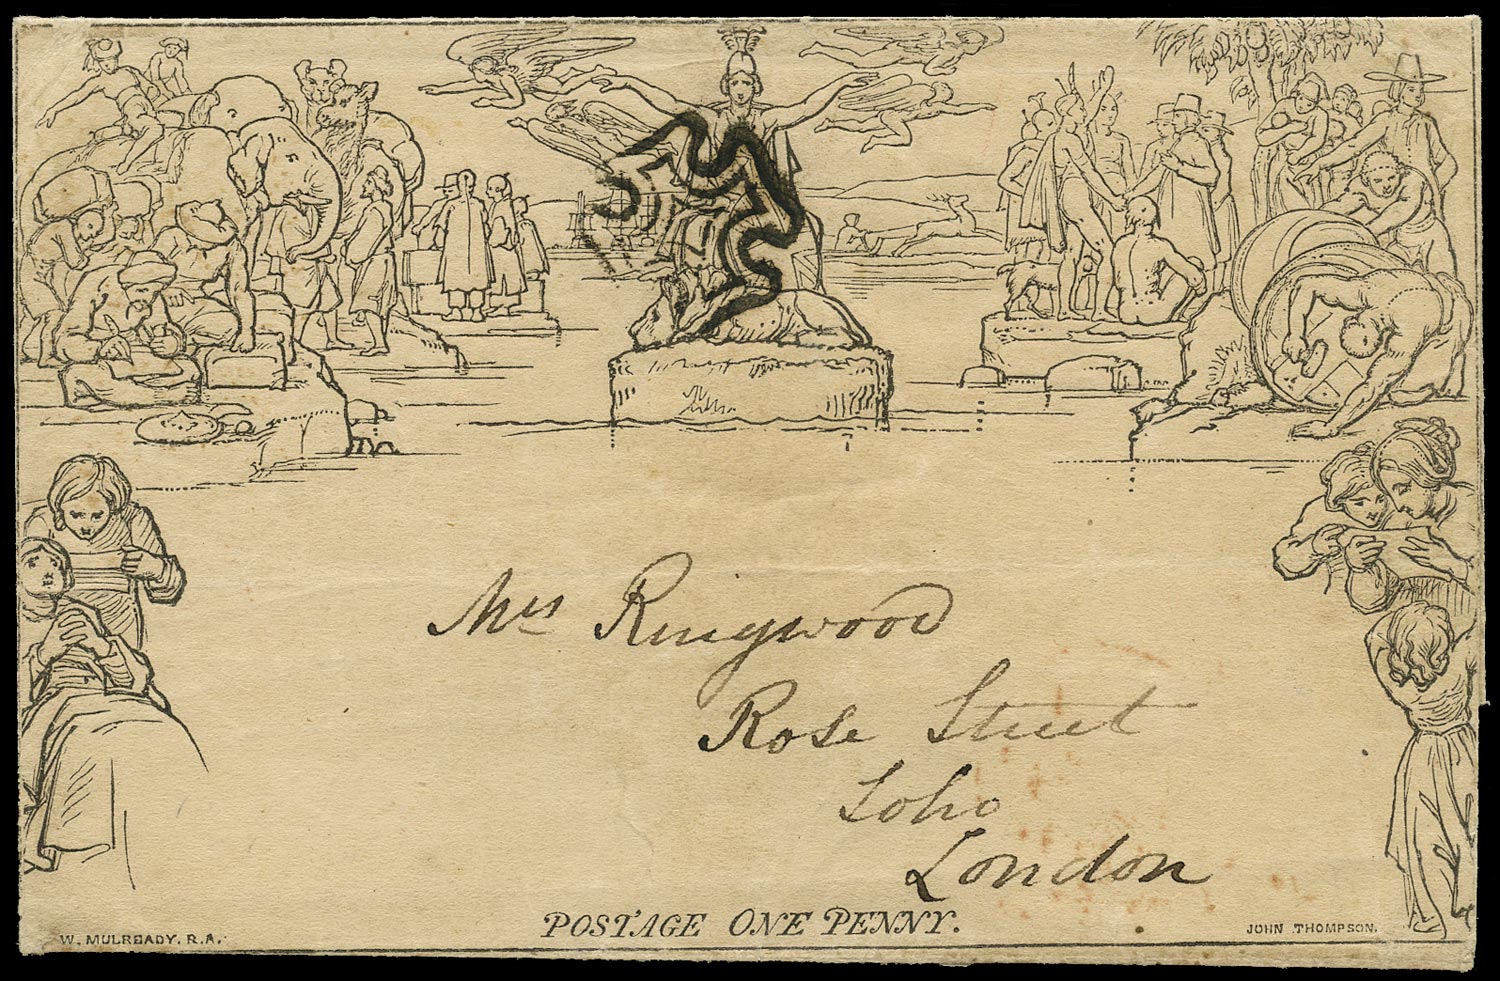 Mrs Ringwood
Rose Street
Soho
London
POSTAGE ONE PENNY.
W. MULREADY. R.A.
JOHN THOMPSON.